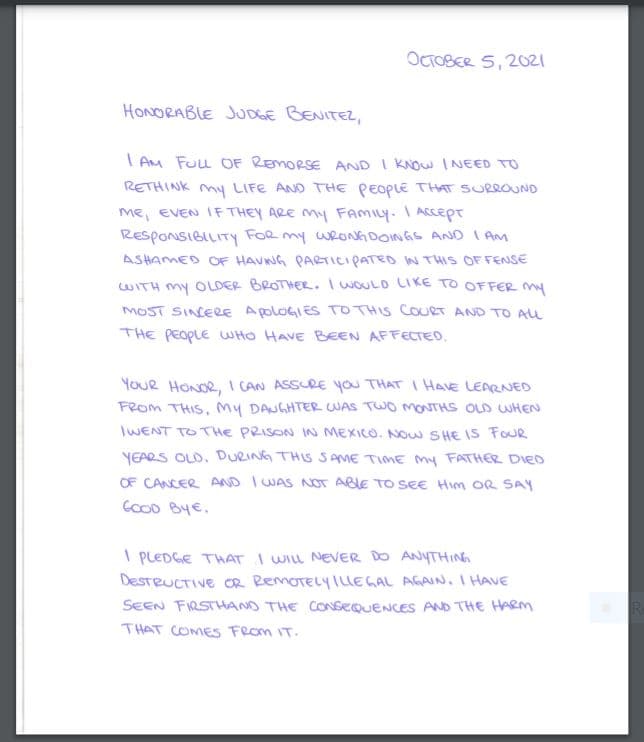 OCTOBER 5, 2021
HONORABLE JUDGE BENITEZ,
I AM FULL OF REMORSE AND I KNOW I NEED TO
RETHINK MY LIFE AND THE PEOPLE THAT SURROUND
ME, EVEN IF THEY ARE MY FAMILY. I ACCEPT
RESPONSIBILITY FOR MY WRONGDOINGS AND I AM
ASHAMED OF HAVING PARTICIPATED IN THIS OFFENSE
WITH MY OLDER BROTHER. I WOULD LIKE TO OFFER MY
MOST SINCERE APOLOGIES TO THIS COURT AND TO ALL
THE PEOPLE WHO HAVE BEEN AFFECTED.
YOUR HONOR, I CAN ASSURE YOU THAT I HAVE LEARNED
FROM THIS, MY DAUGHTER WAS TWO MONTHS OLD WHEN
I WENT TO THE PRISON IN MEXICO. NOW SHE IS FOUR
YEARS OLD. DURING THIS SAME TIME MY FATHER DIED
OF CANCER AND I WAS NOT ABLE TO SEE HIM OR SAY
GOOD BYE.
I PLEDGE THAT I WILL NEVER DO ANYTHING
DESTRUCTIVE OR REMOTELY ILLEGAL AGAIN. I HAVE
SEEN FIRSTHAND THE CONSEQUENCES AND THE HARM
THAT COMES FROM IT.